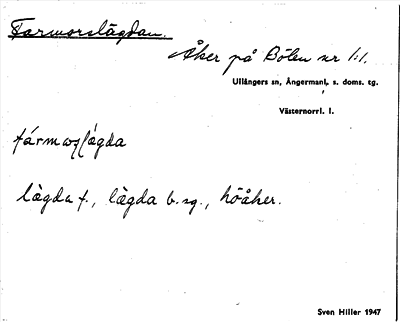 Farmorslägdan.
Åker på Bölen nr 1:1.
Ullångers sn, Ångermanl. s. doms. tg.
Västernorrl. l.
lägda f., lägda b. sg., höåker.
Sven Hiller 1947